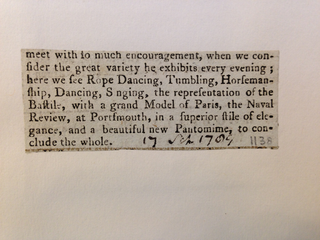 meet with ſo much encouragement, when we con-
ſider the great variety he exhibits every evening;
here we ſee Rope Dancing, Tumbling, Horſeman-
ſhip, Dancing, Singing, the repreſentation of the
Baſtile, with a grand Model of Paris, the Naval
Review, at Portſmouth, in a ſuperior ſtile of ele-
gance, and a beautiful new Pantomime, to con-
clude the whole. 17 1138